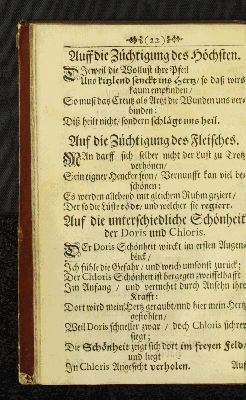 (22)
Auff die Züchtigung des Höchsten.
DIeweil die Wollust ihre Pfeil
Uns kitzlend senckt ins Hertz / so daß wirs
kaum empfinden /
So muß das Creutz als Artzt die Wunden uns ver-
binden:
Diß heilt nicht / sondern schlägt uns heil.
Auf die Züchtigung des Fleisches.
MAn darff sich selber nicht der Lust zu Trotz
verhönen /
Sein eigner Hencker seyn / Vernunfft kan viel be-
schönen:
Es werden allebend mit gleichem Ruhm geziert /
Der so die Lüste tödt, und welcher sie regiert.
Auf die unterschiedliche Schönheit
der Doris und Chloris.
DEr Doris Schönheit würckt im ersten Augen-
blick /
Ich fühle die Gefahr / und weich umsonst zurück;
Der Chloris Schönheit ist hergegen zweiffelhafft
Im Anfang / und vermehrt durch Ansehn ihre
Krafft:
Dort wird mein Hertz geraubt / und hier mein Hertz
gestohlen /
Weil Doris schneller zwar / doch Chloris sichrer
siegt;
Die Schönheit zeigt sich dort im freyen Feld /
und liegt
In Chloris Angesicht verholen.
Auf